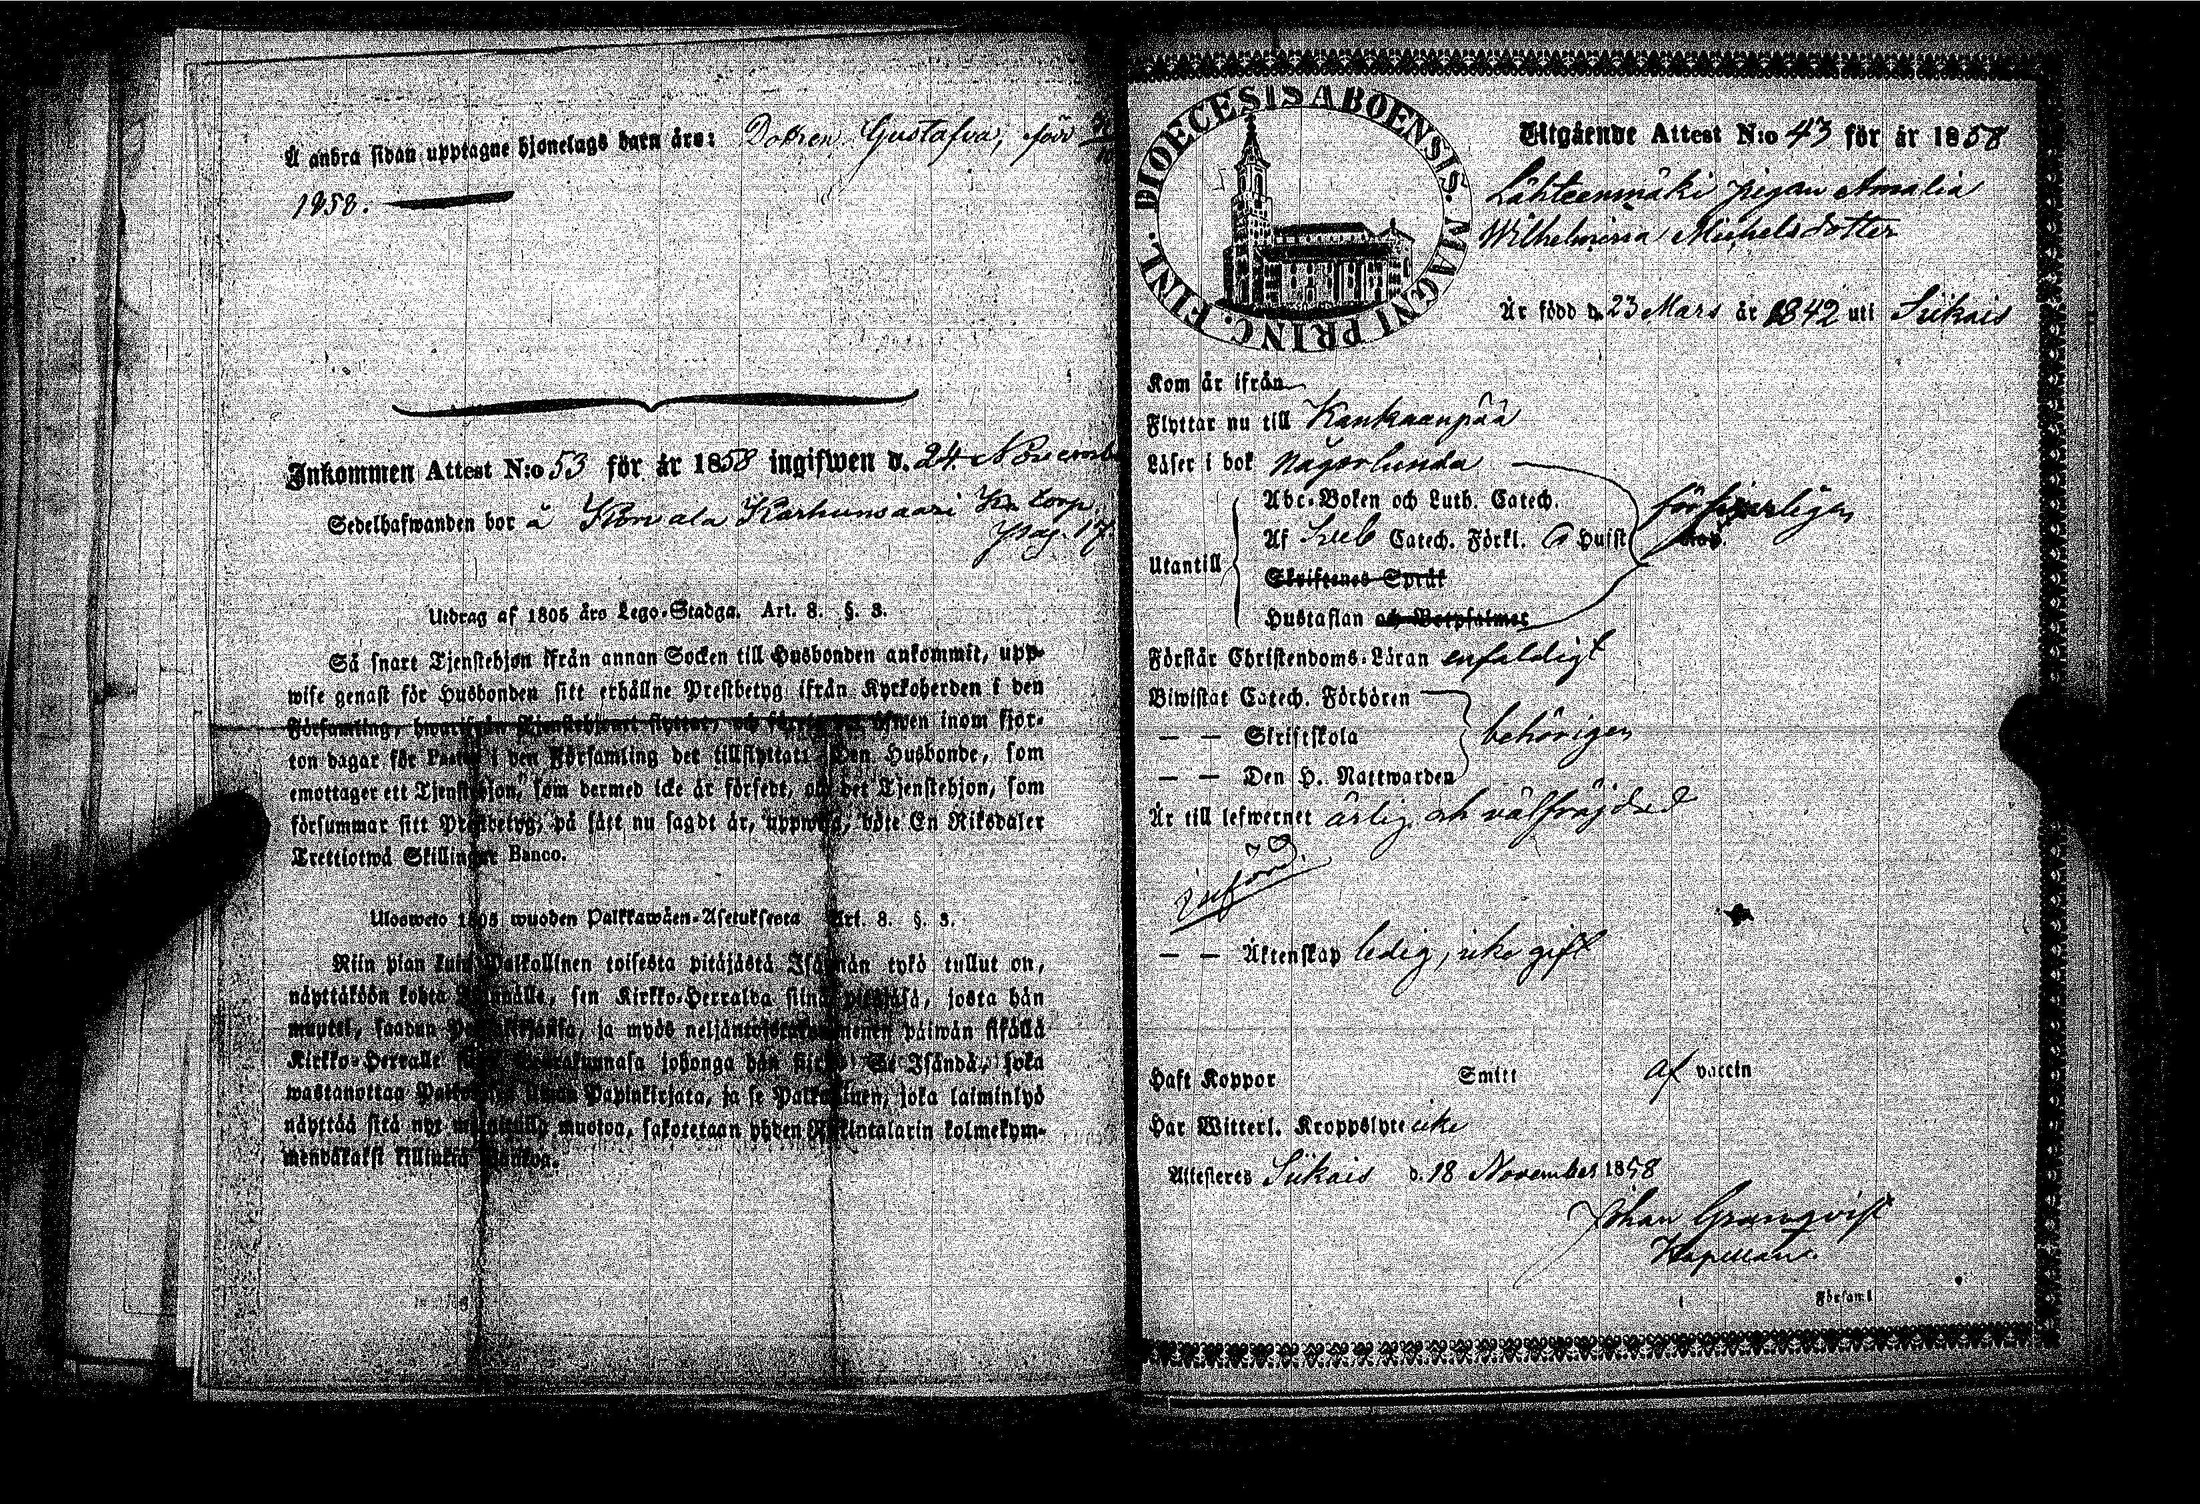 Å andra sidan upptagne hjonelags barn äro: Dottren Gustafva, född
1858.
Inkommen Attest N:o 53 för år 1858 ingifwen d. 24 Novemb
Sedelhafwanden bor å Karhunsaari torp
pag. 17.
Utdrag af 1805 års Lego-Stadga. Art. 8. §. 3.
Så snart Tjenstehjon ifrån annan Socken till Husbonden ankommit, upp-
wise genast för Husbonden sitt erhållne Prestbetyg ifrån Kyrkoherden i den
Församling, hwarifrån Tjenstehjonet flyttat, och äfwen inom fjor-
ton dagar för i den Församling det tillflyttat. Den Husbonde, som
emottager ett Tjenstehjon, som dermed icke är försedt, och det Tjenstehjon, som
försummar sitt Prestbetyg, på sätt nu sagdt är, uppwisa, böte En Riksdaler
Trettiotwå Skillingar Banco.
Ulosweto 1805 wuoden Palkkawäen-Asetuksesta Art. 8. §. 3.
Niin pian kuin Palkollinen toisesta pitäjästä Isännän tykö tullut on,
näyttäköön kohta Isännälle, sen Kirkko-Herralda siinä pitäjäsä, josta hän
muutti, saadun, ja myös neljäntoistakymmenen päiwän sisällä
Kirkko-Herralle Seurakunnasa johonga hän Se Isändä, joka
wastanottaa ilman Papinkirjata, ja se Palkollinen, joka laiminlyö
näyttää sitä nyt muotoa, sakotetaan yhden Riksintalarin kolmekym-
mendäkaksi killinkiä Bankoa.
DIOECESIS ABOENSIS. MAGNI PRINC. FINL.
Utgående Attest N:o 43 för år 1858
Lähteenmäki pigan Amalia
Wilhelmina Michelsdotter
Är född d. 23 Mars år 1842 uti Siikais
Kom år ifrån
Flyttar nu till Kankaanpää
Läser i bok någorlunda
Abc-Boken och Luth. Catech.
försvarligen
Utantill
Af Sveb Catech. Förkl. 6 Hufst
Skriftenes Språk
Hustaflan och Botpsalmer
Förstår Christendoms-Läran enfaldigt
Biwistat Catech. Förhören
— — Skriftskola behörigen
— — Den H. Nattwarden
Är till lefwernet ärlig och välfräjdad
införd.
— — Äktenskap ledig, icke gift
Haft Koppor Smitt af vaccin
Har Witterl. Kroppslyte icke
Attesteres Siikais d. 18 November 1858
Johan Granqvist
Kapellan.
i Församl